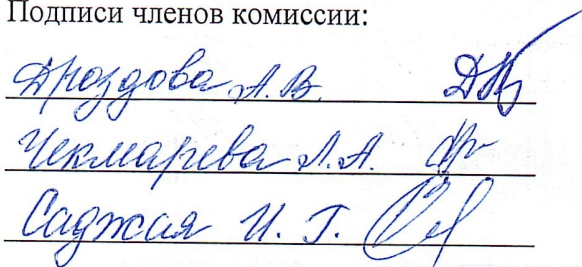 Подписи членов комиссии:
Дроздова А. В.
Чекмарева Л. А.
Саджая И. Г.